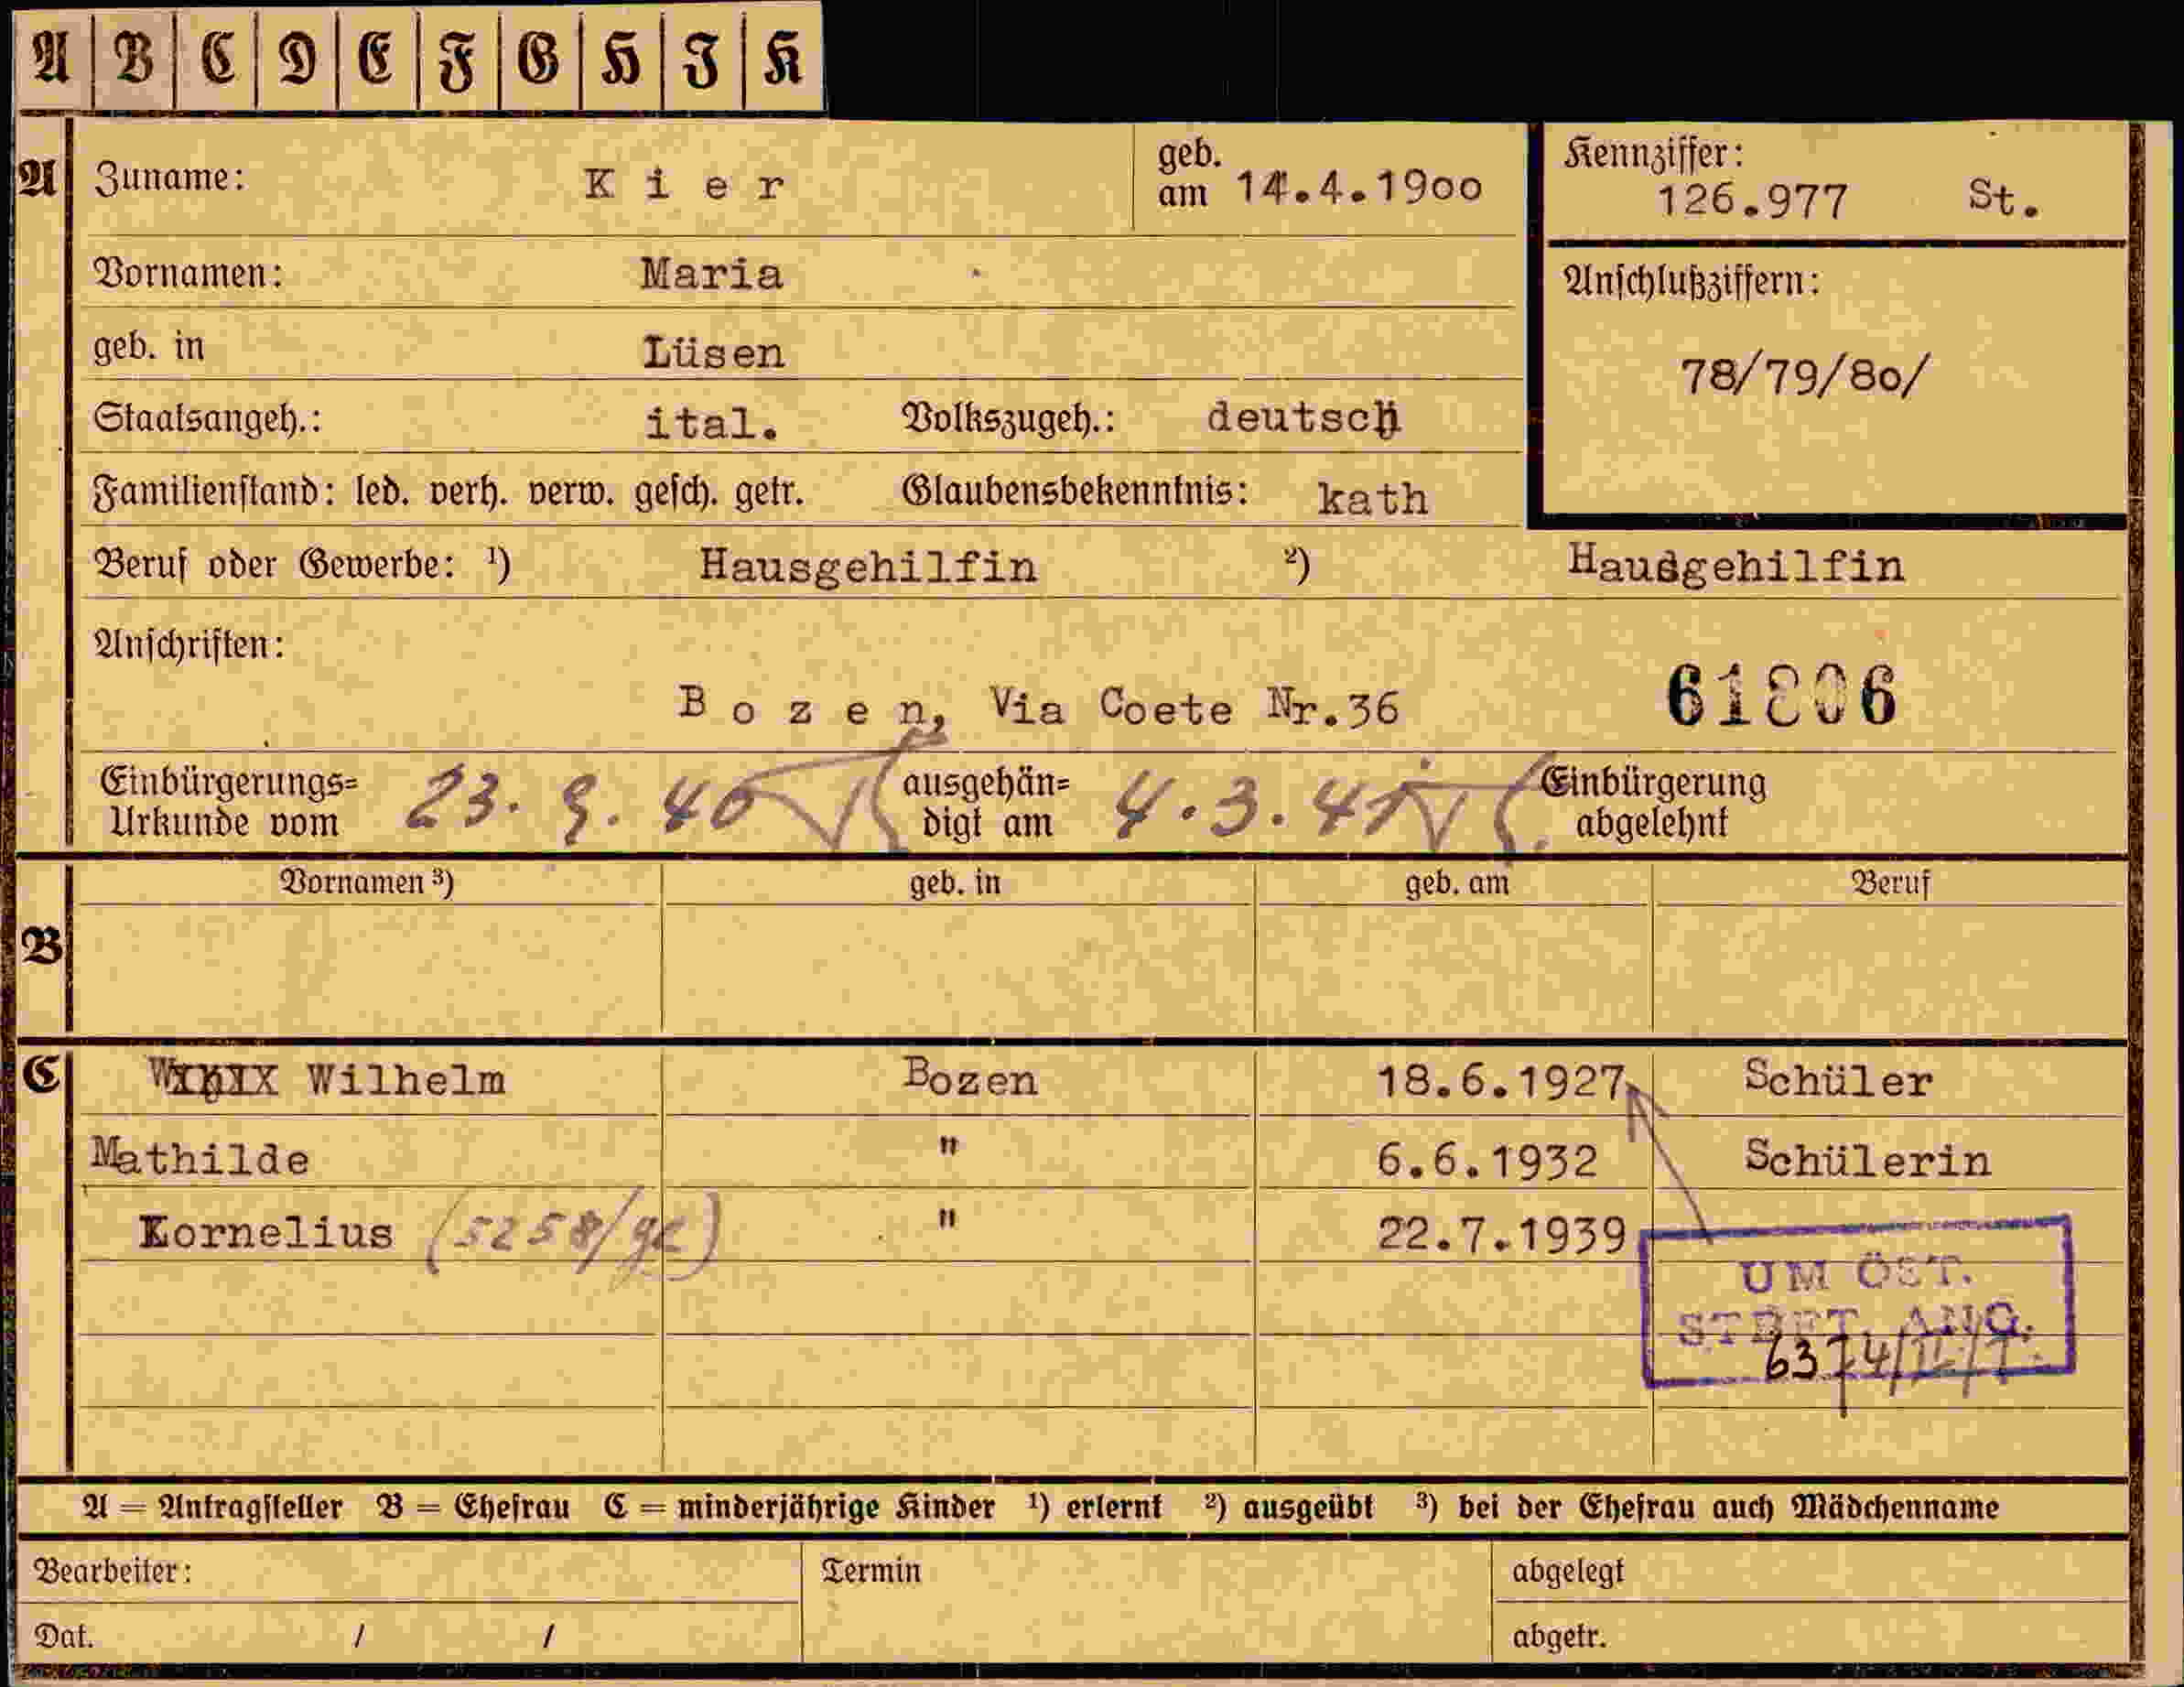 A B C D E F G H I K
A Zuname: Kier geb. am 14.4.1900 Kennziffer: 126.977 St.
Vornamen: Maria
Anschlußziffern:
geb. in Lüsen
78/79/80/
Staatsangeh.: ital. Volkszugeh.: deutsch
Familienstand: led. verh. verw. gesch. getr. Glaubensbekenntnis: kath
Beruf oder Gewerbe: ¹) Hausgehilfin ²) Hausgehilfin
Anschriften:
Bozen, Via Coete Nr.36 61806
Einbürgerungs=
Urkunde vom 23. 9. 40 ausgehän=
digt am 4.3.41 Einbürgerung
abgelehnt
Vornamen ³) geb. in geb. am Beruf
B
C Wilhelm Bozen 18.6.1927 Schüler
Mathilde " 6.6.1932 Schülerin
Kornelius (5258/ge) " 22.7.1939
UM ÖST.
ANG.
A = Antragsteller B = Ehefrau C = minderjährige Kinder ¹) erlernt ²) ausgeübt ³) bei der Ehefrau auch Mädchenname
Bearbeiter: Termin abgelegt
Dat. / / abgetr.